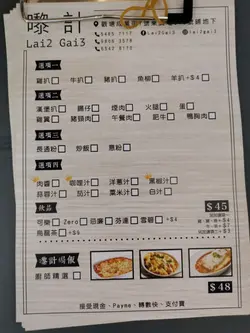 嚟計
Lai2 Gai3
選項一
雞扒 牛扒 豬扒 魚柳 羊扒+$4
選項二
漢堡扒 腸仔 煙肉 火腿 蛋
雞翼 豬頸肉 午餐肉 肥牛 鴨胸肉
選項三
長通粉 炒飯 意粉
選項四
肉醬 咖喱汁 洋蔥汁 黑椒汁
蒜蓉汁 茄汁 粟米汁 白汁
飲品
$45
可樂 Zero 忌廉 芬達 雪碧 +$4
烏龍茶 +$6
嚟計焗飯
廚師精選
$48
接受現金、Payme、轉數快、支付寶